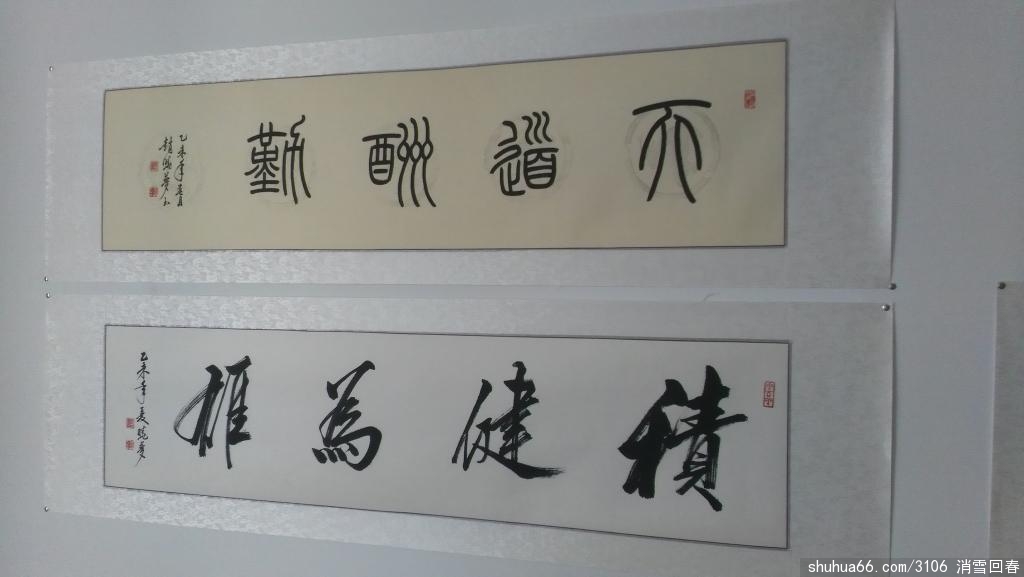 天道酬勤
乙未年夏月
積健為雄
乙未年夏曉彥
shuhua66.com/3106 消雪回春